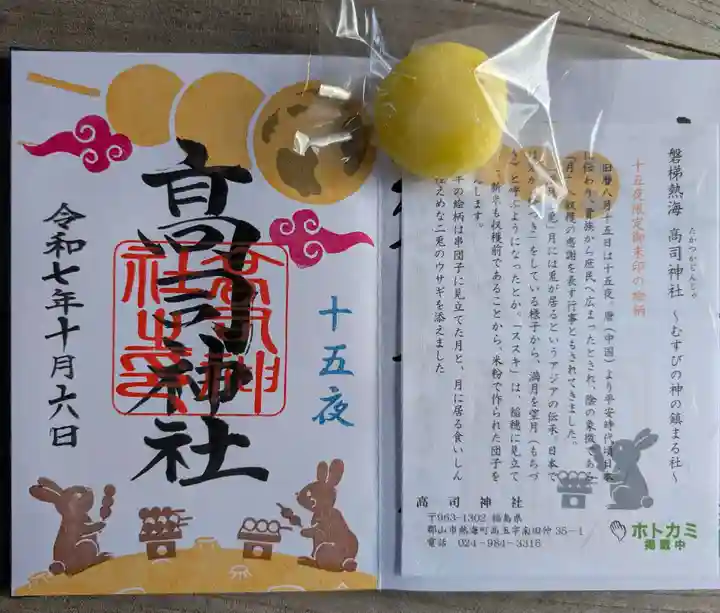 高司神社
高司神
社之印
十五夜
令和七年十月六日
磐梯熱海 高司神社 ～むすびの神の鎮まる社～
たかつかさじんじゃ
十五夜限定御朱印の絵柄
旧暦八月十五日は十五夜。唐（中国）より平安時代頃日本
に伝わり、貴族から庶民へ広まったとされ、陰の象徴である
「月」に収穫の感謝を表す行事ともされてきました。
月には兎が居るというアジアの伝承。日本で
をしている様子から、満月を望月（もちづ
き）と呼ぶようになったとか。「ススキ」は、稲穂に見立て
新米も収穫前であることから、米粉で作られた団子を
します。
の絵柄は串団子に見立てた月と、月に居る食いしん
えめな二兎のウサギを添えました
高司神社
〒963-1302 福島県
郡山市熱海町高玉字南田仲35-1
電話 024-984-3316
ホトカミ
掲載中